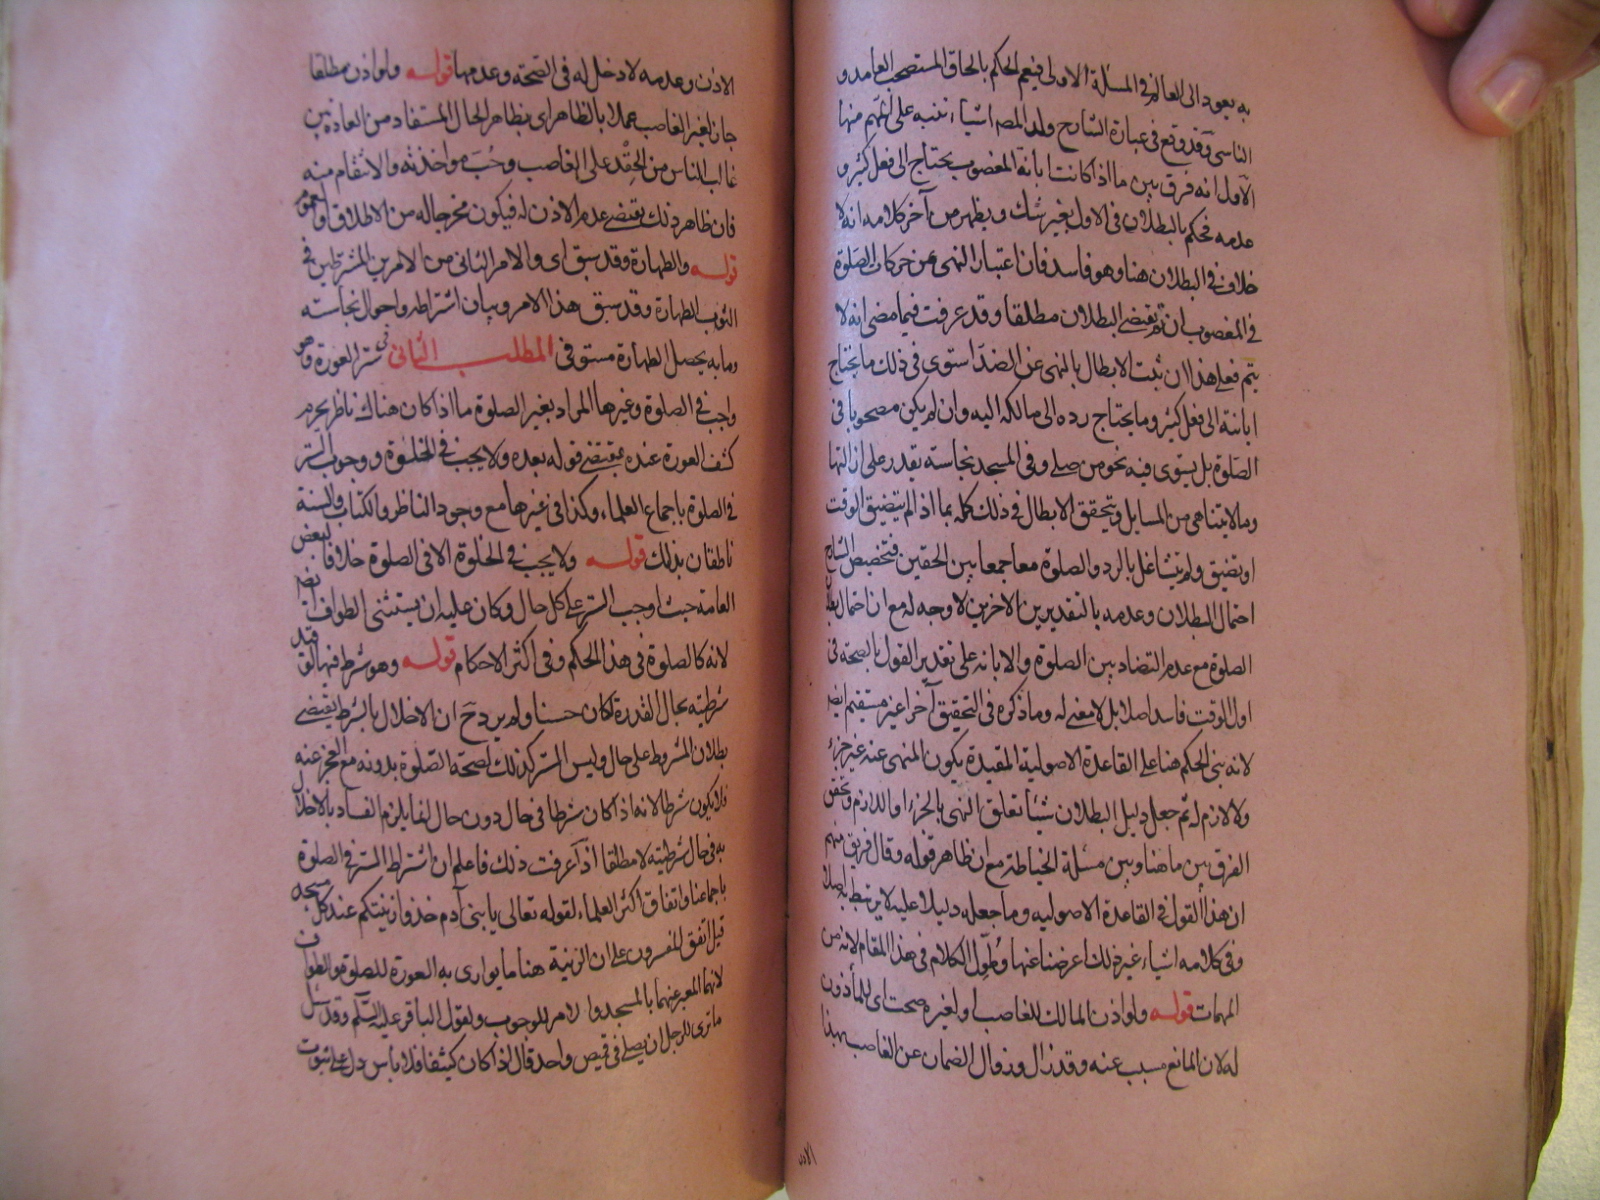 به يعود الى العالم في المسئلة الاولى فيعم الحكم بالحاق المستصحب العامد و
الناسى وقد وقع في عبارة الشارح ولد المصر اشياء ننبه على المهم منها
الاول انه فرق بين ما اذا كانت ابانة المغصوب يحتاج الى فعل كثير و
عدمه فحكم بالبطلان في الاول بغير شك ويظهر من آخر كلامه انه لا
خلاف في البطلان هنا وهو فاسد فان اعتبار النهى عن حركات الصلوة
في المغصوب ان تم يقتضى البطلان مطلقا وقد عرفت فيما مضى انه لا
يتم فعلى هذا ان ثبت الابطال بالنهى عن الضد استوى في ذلك ما يحتاج
ابانته الى فعل كثير وما يحتاج رده الى مالكه اليه وان لم يكن مصحوبا فى
الصلوة بل يستوى فيه نحو من صلى وفى المسجد نجاسة يقدر على ازالتها
وما لا يتناهى من المسايل ويتحقق الابطال في ذلك كله بما اذا لم يتضيق الوقت
او تضيق ولم يتشاغل بالرد والصلوة معا جمعا بين الحقين فتخصيص الشارح
احتمال البطلان وعدمه بالتقديرين الاخرين لا وجه له مع ان احتمال بطلان
الصلوة مع عدم التضاد بين الصلوة والابانة على تقدير القول بالصحة فى
اول الوقت فاسد اصلا بل لا معنى له وما ذكره فى التحقيق آخرا غير مستقيم ايضا
لانه بنى الحكم هنا على القاعدة الاصولية المقيدة بكون المنهى عنه غير جزء
ولا لازم له ثم جعل دليل البطلان شيئا تعلق النهى بالجزء او اللازم وتحقق
الفرق بين ما هنا وبين مسئلة الخياطة مع ان ظاهر قوله وقال فريق منهم
ان هذا القول فى القاعدة الاصوليه وما جعله دليلا عليه لا يرتبط به اصلا
وفى كلامه اشياء غير ذلك اعرضنا عنها وطول الكلام فى هذا المقام لانه من
المهمات قوله ولو اذن المالك للغاصب او لغيره صحت اى للمأذون
له لان المانع مسبب عنه وقد زال وزوال الضمان عن الغاصب بهذا
الاذن
الاذن وعدمه لا دخل له فى الصحة وعدمها قوله ولو اذن مطلقا
جاز لغير الغاصب عملا بالظاهر اى بظاهر الحال المستفاد من العادة بين
غالب الناس من الحقد على الغاصب وحب مواخذته والانتقام منه
فان ظاهر ذلك يقتضى عدم الاذن له فيكون مخرجا له من الاطلاق والعموم
قوله والطهارة وقد سبق اى والامر الثانى من الامرين المشترطين فى
الثوب الطهارة وقد سبق هذا الامر وبيان اشتراطه واحوال نجاسته
وما به يحصل الطهارة مستوفى المطلب الثانى فى ستر العورة وهو
واجب فى الصلوة وغيرها المراد بغير الصلوة ما اذا كان هناك ناظر يحرم
كشف العورة عنده بمقتضى قوله بعده ولا يجب فى الخلوة ووجوب الستر
فى الصلوة باجماع العلماء وكذا فى غيرها مع وجود الناظر والكتاب والسنة
ناطقان بذلك قوله ولا يجب فى الخلوة الا فى الصلوة خلافا لبعض
العامة حيث اوجب الستر على كل حال وكان عليه ان يستثنى الطواف ايضا
لانه كالصلوة فى هذا الحكم وفى اكثر الاحكام قوله وهو شرط فيها لو قيد
شرطيته بحال القدرة لكان حسنا ولم يرد ح ان الاخلال بالشرط يقتضى
بطلان المشروط على حال وليس الستر كذلك لصحة الصلوة بدونه مع العجز عنه
فلا يكون شرطا لانه اذا كان شرطا فى حال دون حال انما يلزم الفساد بالاخلال
به فى حال شرطيته لا مطلقا اذا عرفت ذلك فاعلم ان اشتراط الستر فى الصلوة
باجماعنا واتفاق اكثر العلماء لقوله تعالى يا بنى آدم خذوا زينتكم عند كل مسجد
قيل اتفق المفسرون على ان الزينة هنا ما يوارى به العورة للصلوة والطواف
لانهما المعبر عنهما بالمسجد والامر للوجوب ولقول الباقر عليه السلم وقد سئل
ما ترى للرجل ان يصلى فى قميص واحد قال اذا كان كثيفا فلا باس دل على ثبوت